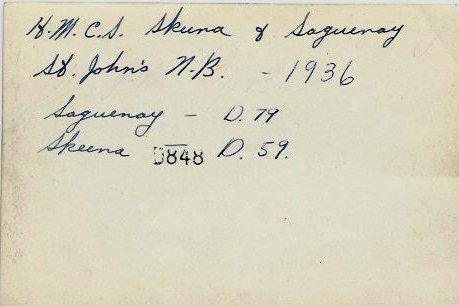 H.M.C.S. Skeena & Saguenay
St. John's N.B. - 1936
Saguenay - D. 79
Skeena D848 D. 59.